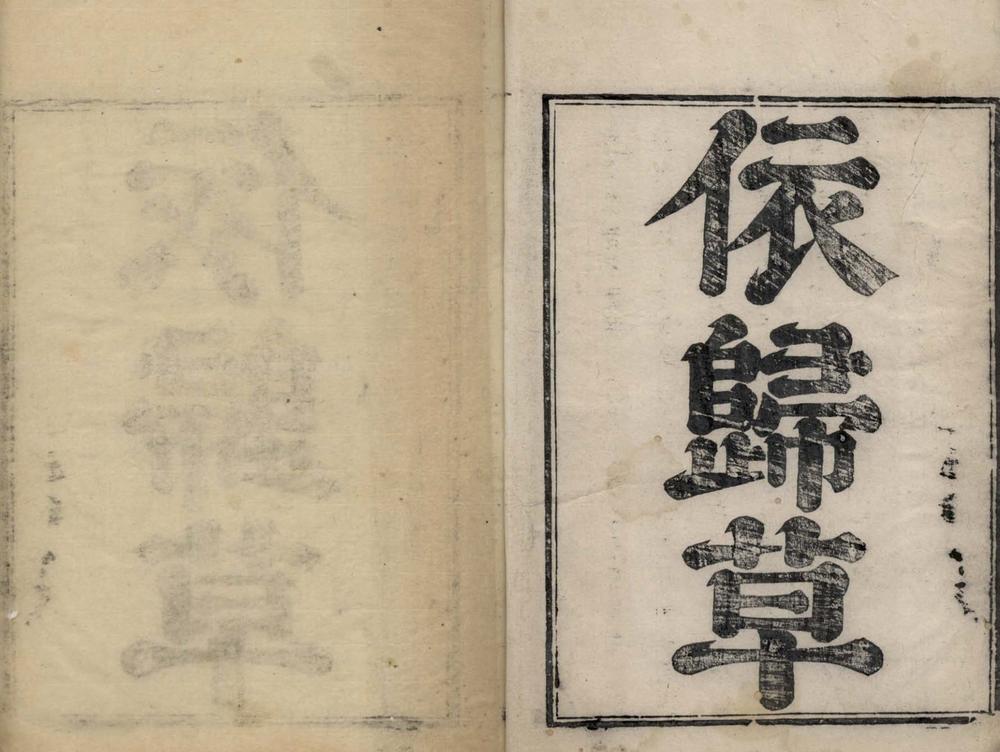 依歸草